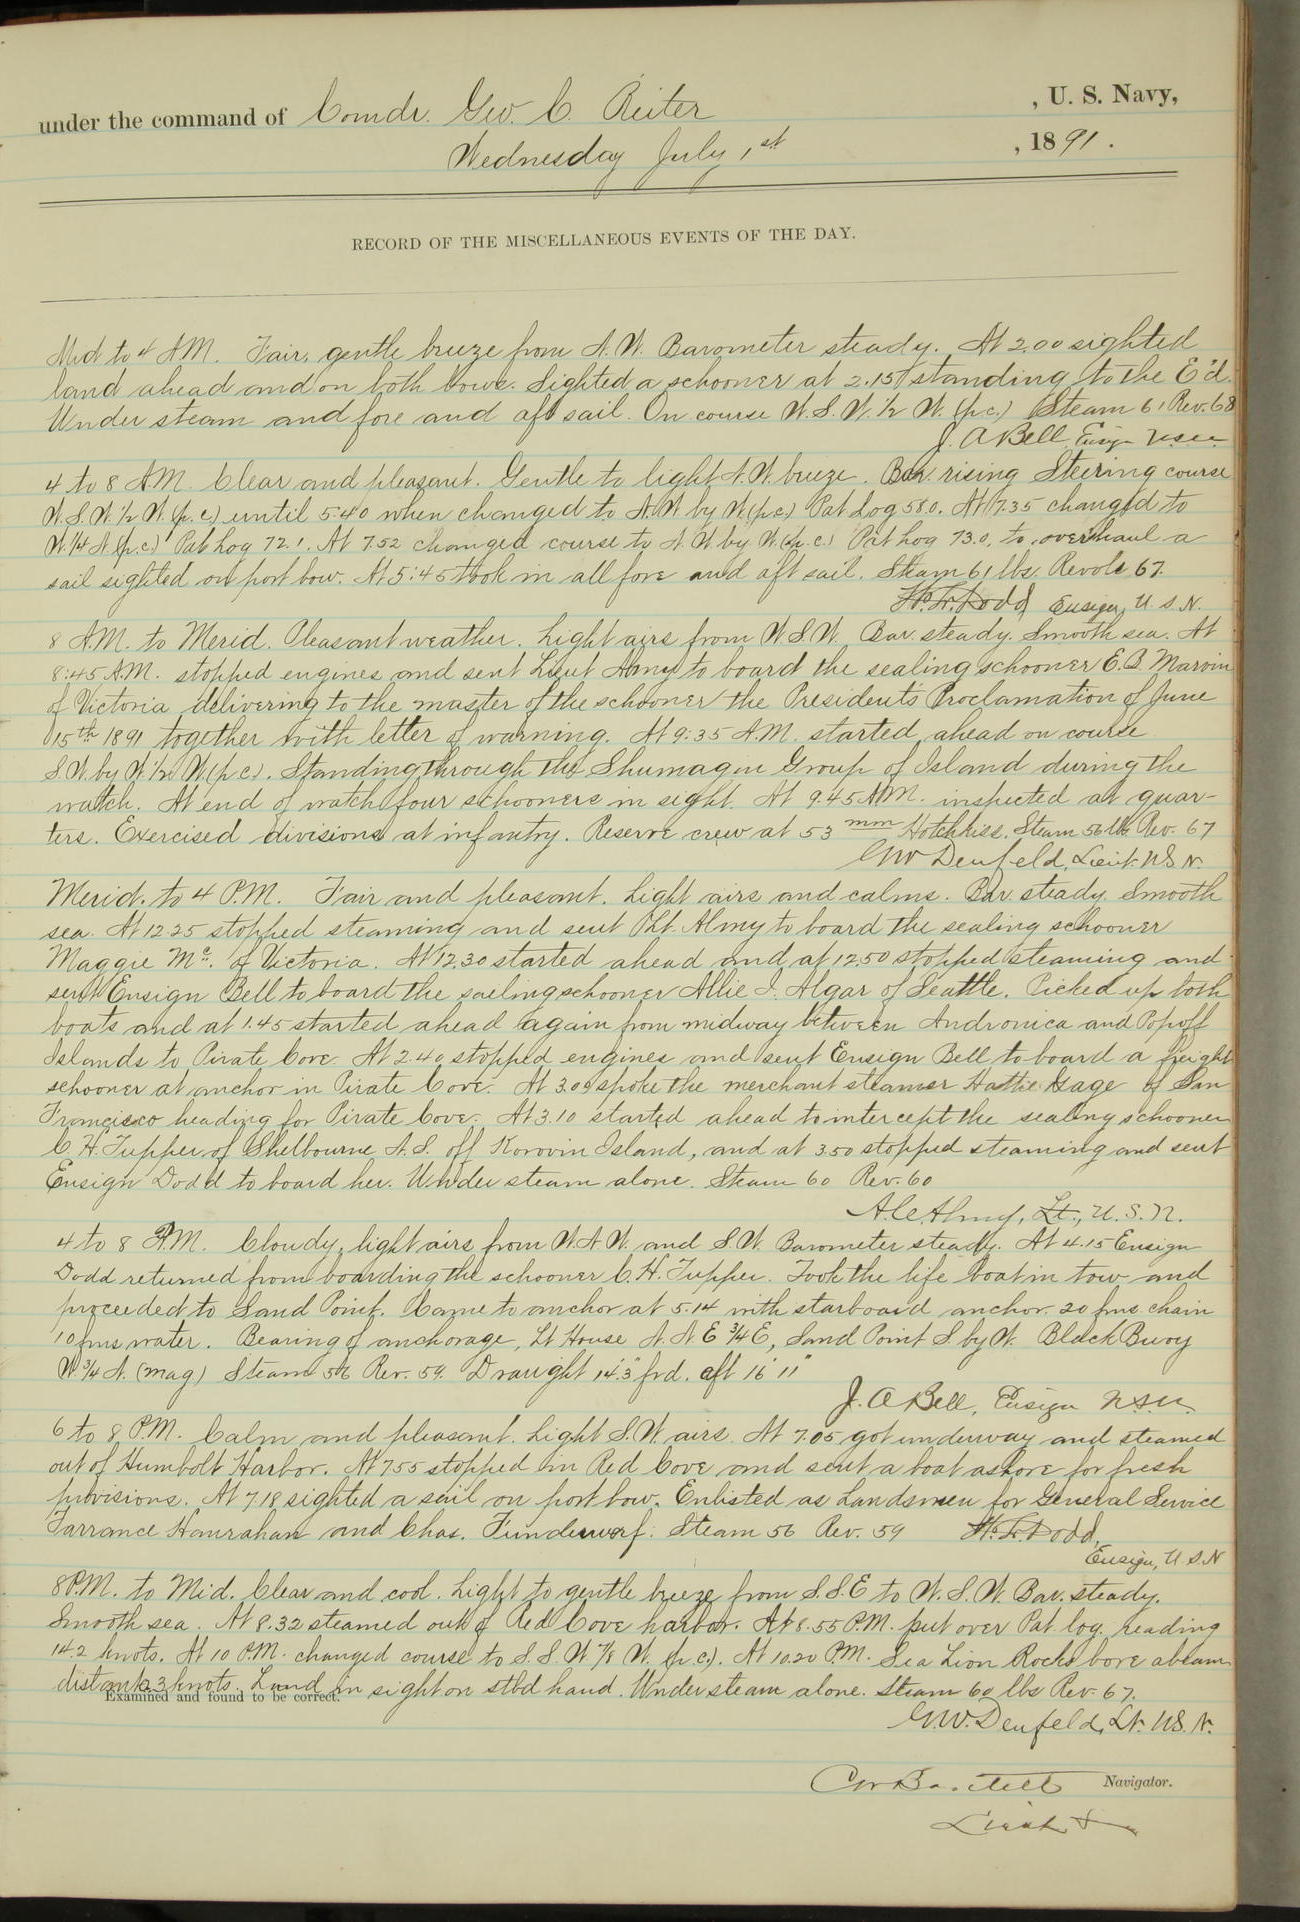 under the command of Comdr. Geo. C. Reiter , U. S. Navy,
Wednesday July 1st , 1891.
RECORD OF THE MISCELLANEOUS EVENTS OF THE DAY.
Mid to 4 AM. Fair, gentle breeze from N.W. Barometer steady. At 2.00 sighted
land ahead and on both bows. Sighted a schooner at 2.15 standing to the E'd.
Under steam and fore and aft sail. On course W.S.W. 1/2 W. (p.c.) Steam 61 Rev. 68
J. A Bell, Ensign U.S.N.
4 to 8 AM. Clear and pleasant. Gentle to light N.W. breeze. Bar. rising Steering course
W.S.W. 1/2 W. (p.c.) until 5:40 when changed to N.W by W (p.c.) Pat Log 58.0. At 7.35 changed to
W. 1/4 N. (p.c.) Pat Log 72.1. At 7.52 changed course to N.W. by W. (p.c.) Pat Log 73.0, to overhaul a
sail sighted on port bow. At 5:45 took in all fore and aft sail. Steam 61 lbs. Revols 67.
Dodd Ensign, U.S.N.
8 A.M. to Merid. Pleasant weather. Light airs from W.S.W. Bar. steady. Smooth sea. At
8:45 A.M. stopped engines and sent Lieut Almy to board the sealing schooner E.B. Marvin
of Victoria delivering to the master of the schooner the President's Proclamation of June
15th 1891 together with letter of warning. At 9:35 A.M. started ahead on course
S.W. by W. 1/2 W. (p.c.). Standing through the Shumagin Group of Island during the
watch. At end of watch four schooners in sight. At 9.45 A.M. inspected at quar-
ters. Exercised divisions at infantry. Reserve crew at 53 mm Hotchkiss. Steam 56 lbs Rev. 67
G W Denfeld, Lieut. U.S.N.
Merid. to 4 P.M. Fair and pleasant. Light airs and calms. Bar. steady. Smooth
sea. At 12.25 stopped steaming and sent Lt. Almy to board the sealing schooner
Maggie Mc. of Victoria. At 12.30 started ahead and at 12.50 stopped steaming and
sent Ensign Bell to board the sealing schooner Allie I. Algar of Seattle. Picked up both
boats and at 1.45 started ahead again from midway between Andronica and Popoff
Islands to Pirate Cove. At 2.40 stopped engines and sent Ensign Bell to board a freight
schooner at anchor in Pirate Cove. At 3.00 spoke the merchant steamer Hattie Gage of San
Francisco heading for Pirate Cove. At 3.10 started ahead to intercept the sealing schooner
C.H. Tupper of Shelbourne N.S. off Korovin Island, and at 3.50 stopped steaming and sent
Ensign Dodd to board her. Under steam alone. Steam 60 Rev. 60
A.C. Almy, Lt., U.S.N.
4 to 8 P.M. Cloudy, light airs from W.N.W. and S.W. Barometer steady. At 4.15 Ensign
Dodd returned from boarding the schooner C.H. Tupper. Took the life boat in tow and
proceeded to Sand Point. Came to anchor at 5.14 with starboard anchor. 20 fms chain
10 fms water. Bearing of anchorage, Lt House N.N.E 3/4 E, Sand Point S. by W. Black Buoy
W. 3/4 N. (mag) Steam 56 Rev. 59. Draught 14' 3" frd. aft 16' 11"
J. A Bell, Ensign U.S.N.
6 to 8 P.M. Calm and pleasant. Light S.W. airs. At 7.05 got underway and steamed
out of Humbolt Harbor. At 7.55 stopped in Red Cove and sent a boat ashore for fresh
provisions. At 7.18 sighted a sail on port bow. Enlisted as Landsmen for General Service
Tarrance Hanrahan and Chas. Steam 56 Rev. 59 Dodd,
Ensign, U.S.N
8 P.M. to Mid. Clear and cool. Light to gentle breeze from S.S.E to W.S.W. Bar. steady.
Smooth sea. At 8.32 steamed out of Red Cove harbor. At 8.55 P.M. put over Pat log. reading
14.2 knots. At 10 P.M. changed course to S.S.W 7/8 W. (p.c.). At 10.20 P.M. Sea Lion Rocks bore abeam
distant 2.3 knots. Land in sight on stbd hand. Under steam alone. Steam 60 lbs Rev. 67.
Examined and found to be correct.
G.W. Denfeld, Lt. U.S.N.
C W Bartlett Navigator.
Lieut